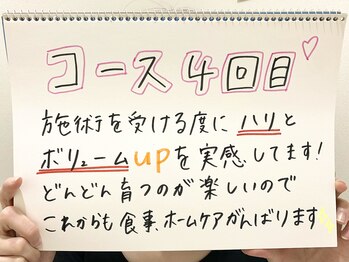 コース4回目♡
施術を受ける度にハリと
ボリュームupを実感してます!
どんどん育つのが楽しいので
これからも食事、ホームケアがんばります